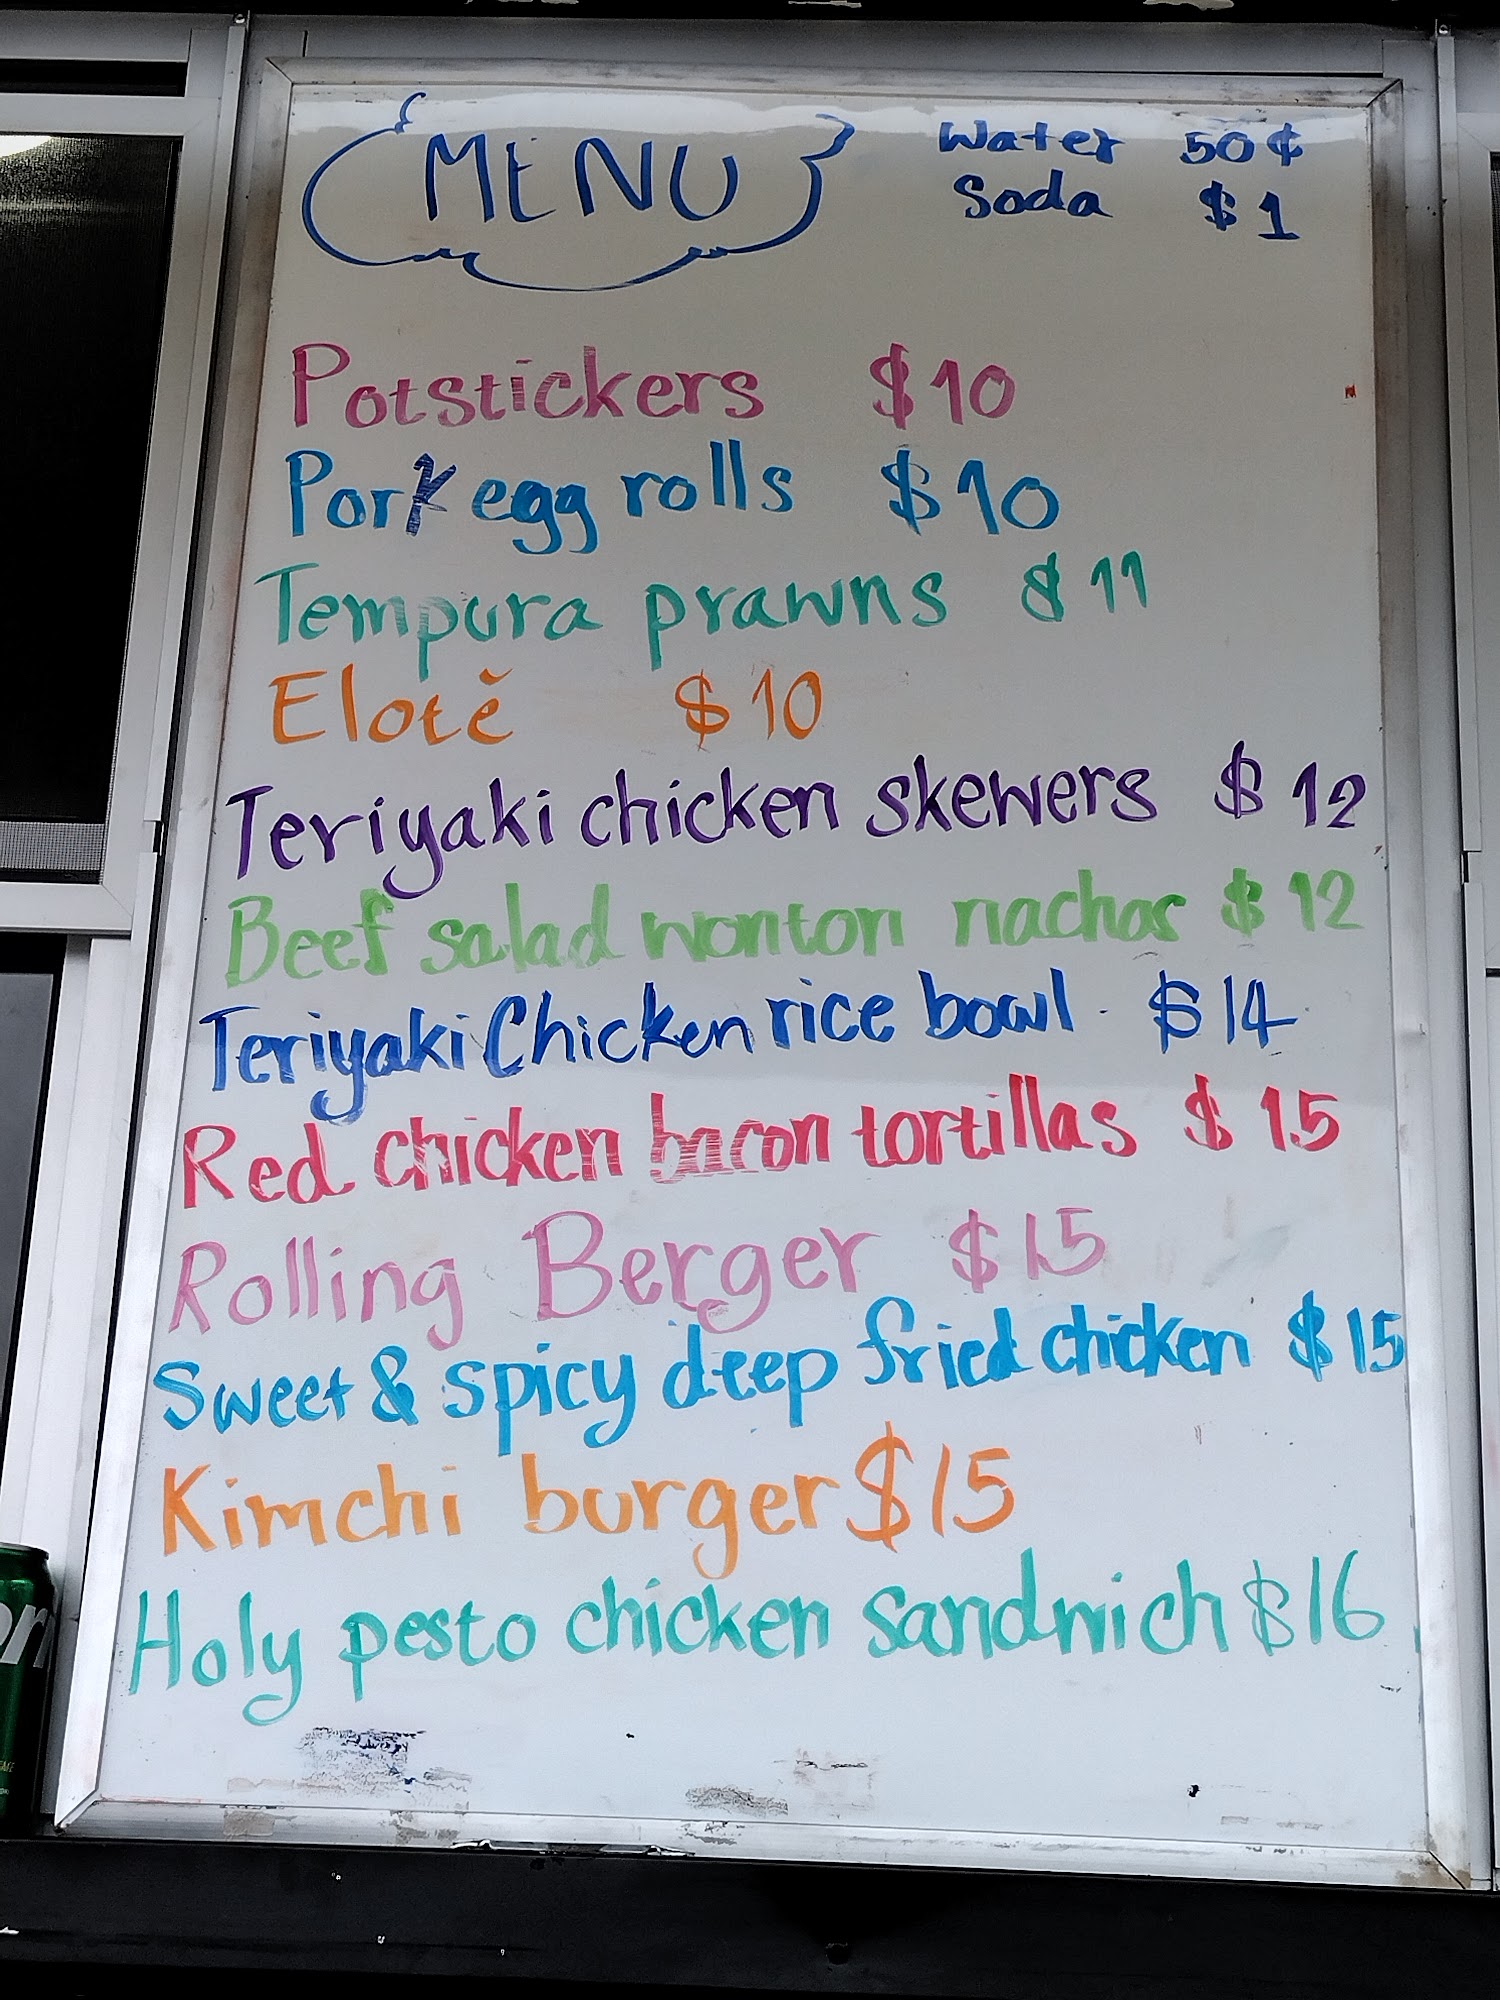 MENU
Water 50¢
Soda $1
Potstickers $10
Pork egg rolls $10
Tempura prawns $11
Elotĕ $10
Teriyaki chicken skewers $12
Beef salad wonton nachos $12
Teriyaki Chicken rice bowl $14
Red chicken bacon tortillas $15
Rolling Berger $15
Sweet & spicy deep fried chicken $15
Kimchi burger $15
Holy pesto chicken sandwich $16